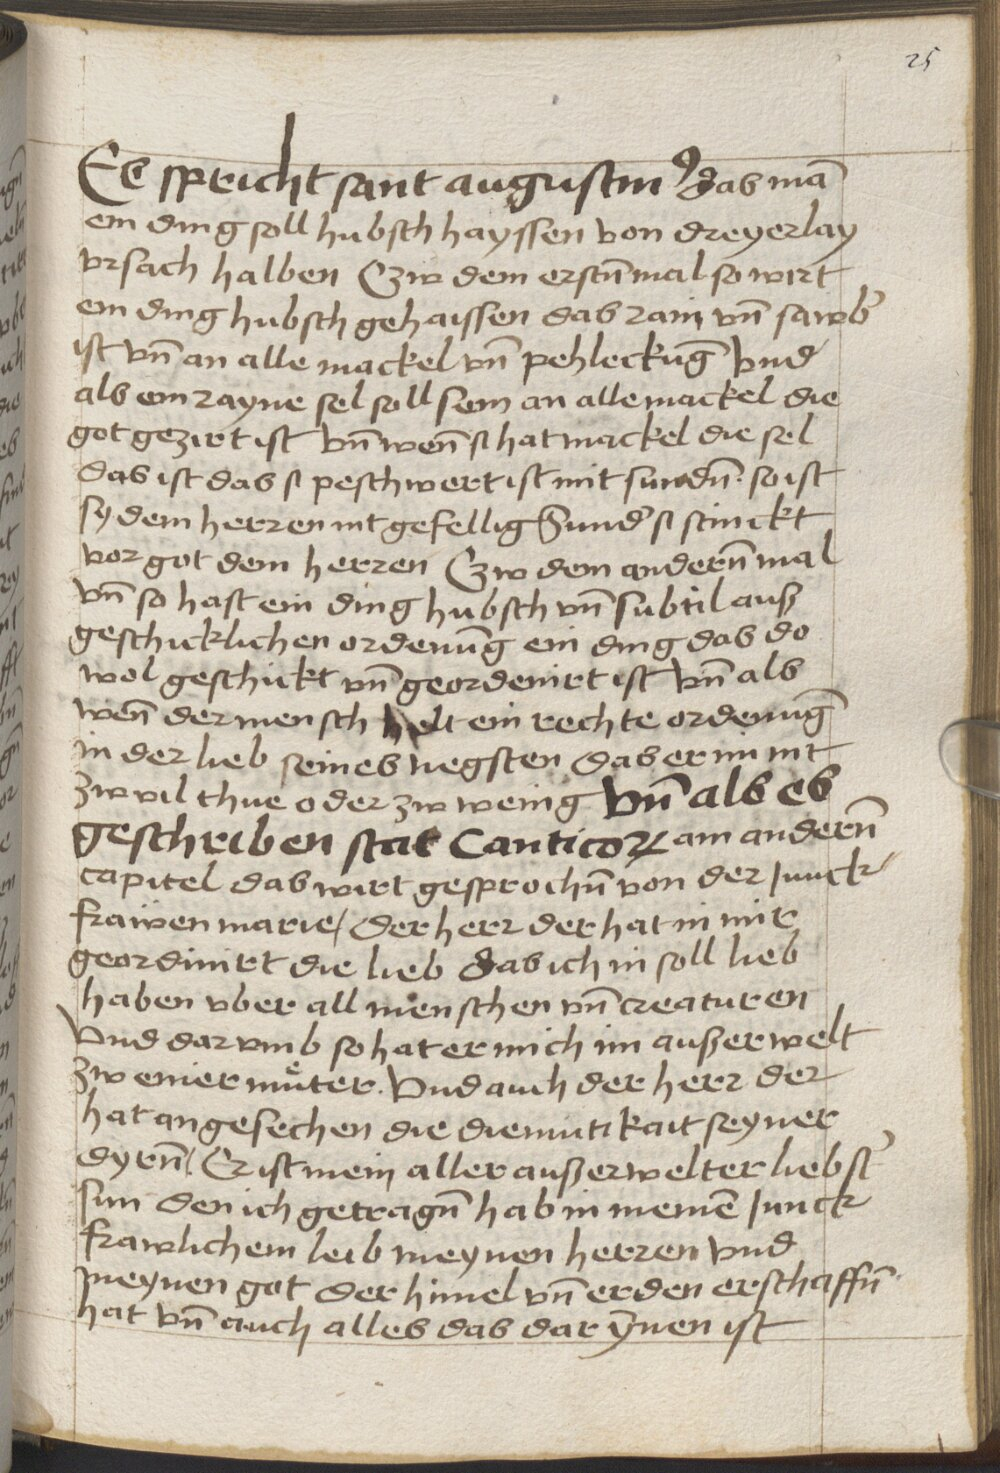 25
Es spricht sant augustin Das mā
ein ding soll hubsch hayssen von dreyerlay
vrsach halben Czw dem erstn̄ mal so wirt
ein ding hubsch gehaissen das rain vn̄ sawb̉
ist vn̄ an alle mackel vn̄ pehleckūg Vnd
als ein rayne sel soll sein an alle mackel die
got gezirt ist vn̄ wen̄ si hat mackel die sel
das ist das si peschwert ist mit sundn̄. so ist
sy dem herren nit gefellig Sund̉ si stinckt
vor got dem herren Czw dem andern̄ mal
vn̄ so hast ein ding hubsch vn̄ subtil auß
geschicklichen ordenūg ein ding das do
wol geschickt vn̄ geordenirt ist vn̄ als
wen̄ der mensch helt ein rechte ordenūg
in der lieb seines negsten das er im nit
zw vil thue oder zw wenig Vn̄ als es
geschriben stat Canticoꝝ am andern̄
capitel das wirt gesprochn̄ von der Junck
frawen marie/ der herr der hat in mir
geordinirt die lieb Das ich in soll lieb
haben vber all menschen vn̄ creaturen
Vnd dar vmb so hat er mich im außerwelt
zw einer muͤter. Vnd auch der herr der
hat angesechen die diemutikait seyner
dyrn̄/ Er ist mein aller außerwelter liebst̉
sun den ich getragn̄ hab in meinē Junck
frawlichem leib meynen herren vnd
meynen got der himel vn̄ erden erschaffn̄
hat vn̄ auch alles das dar ȳnen ist